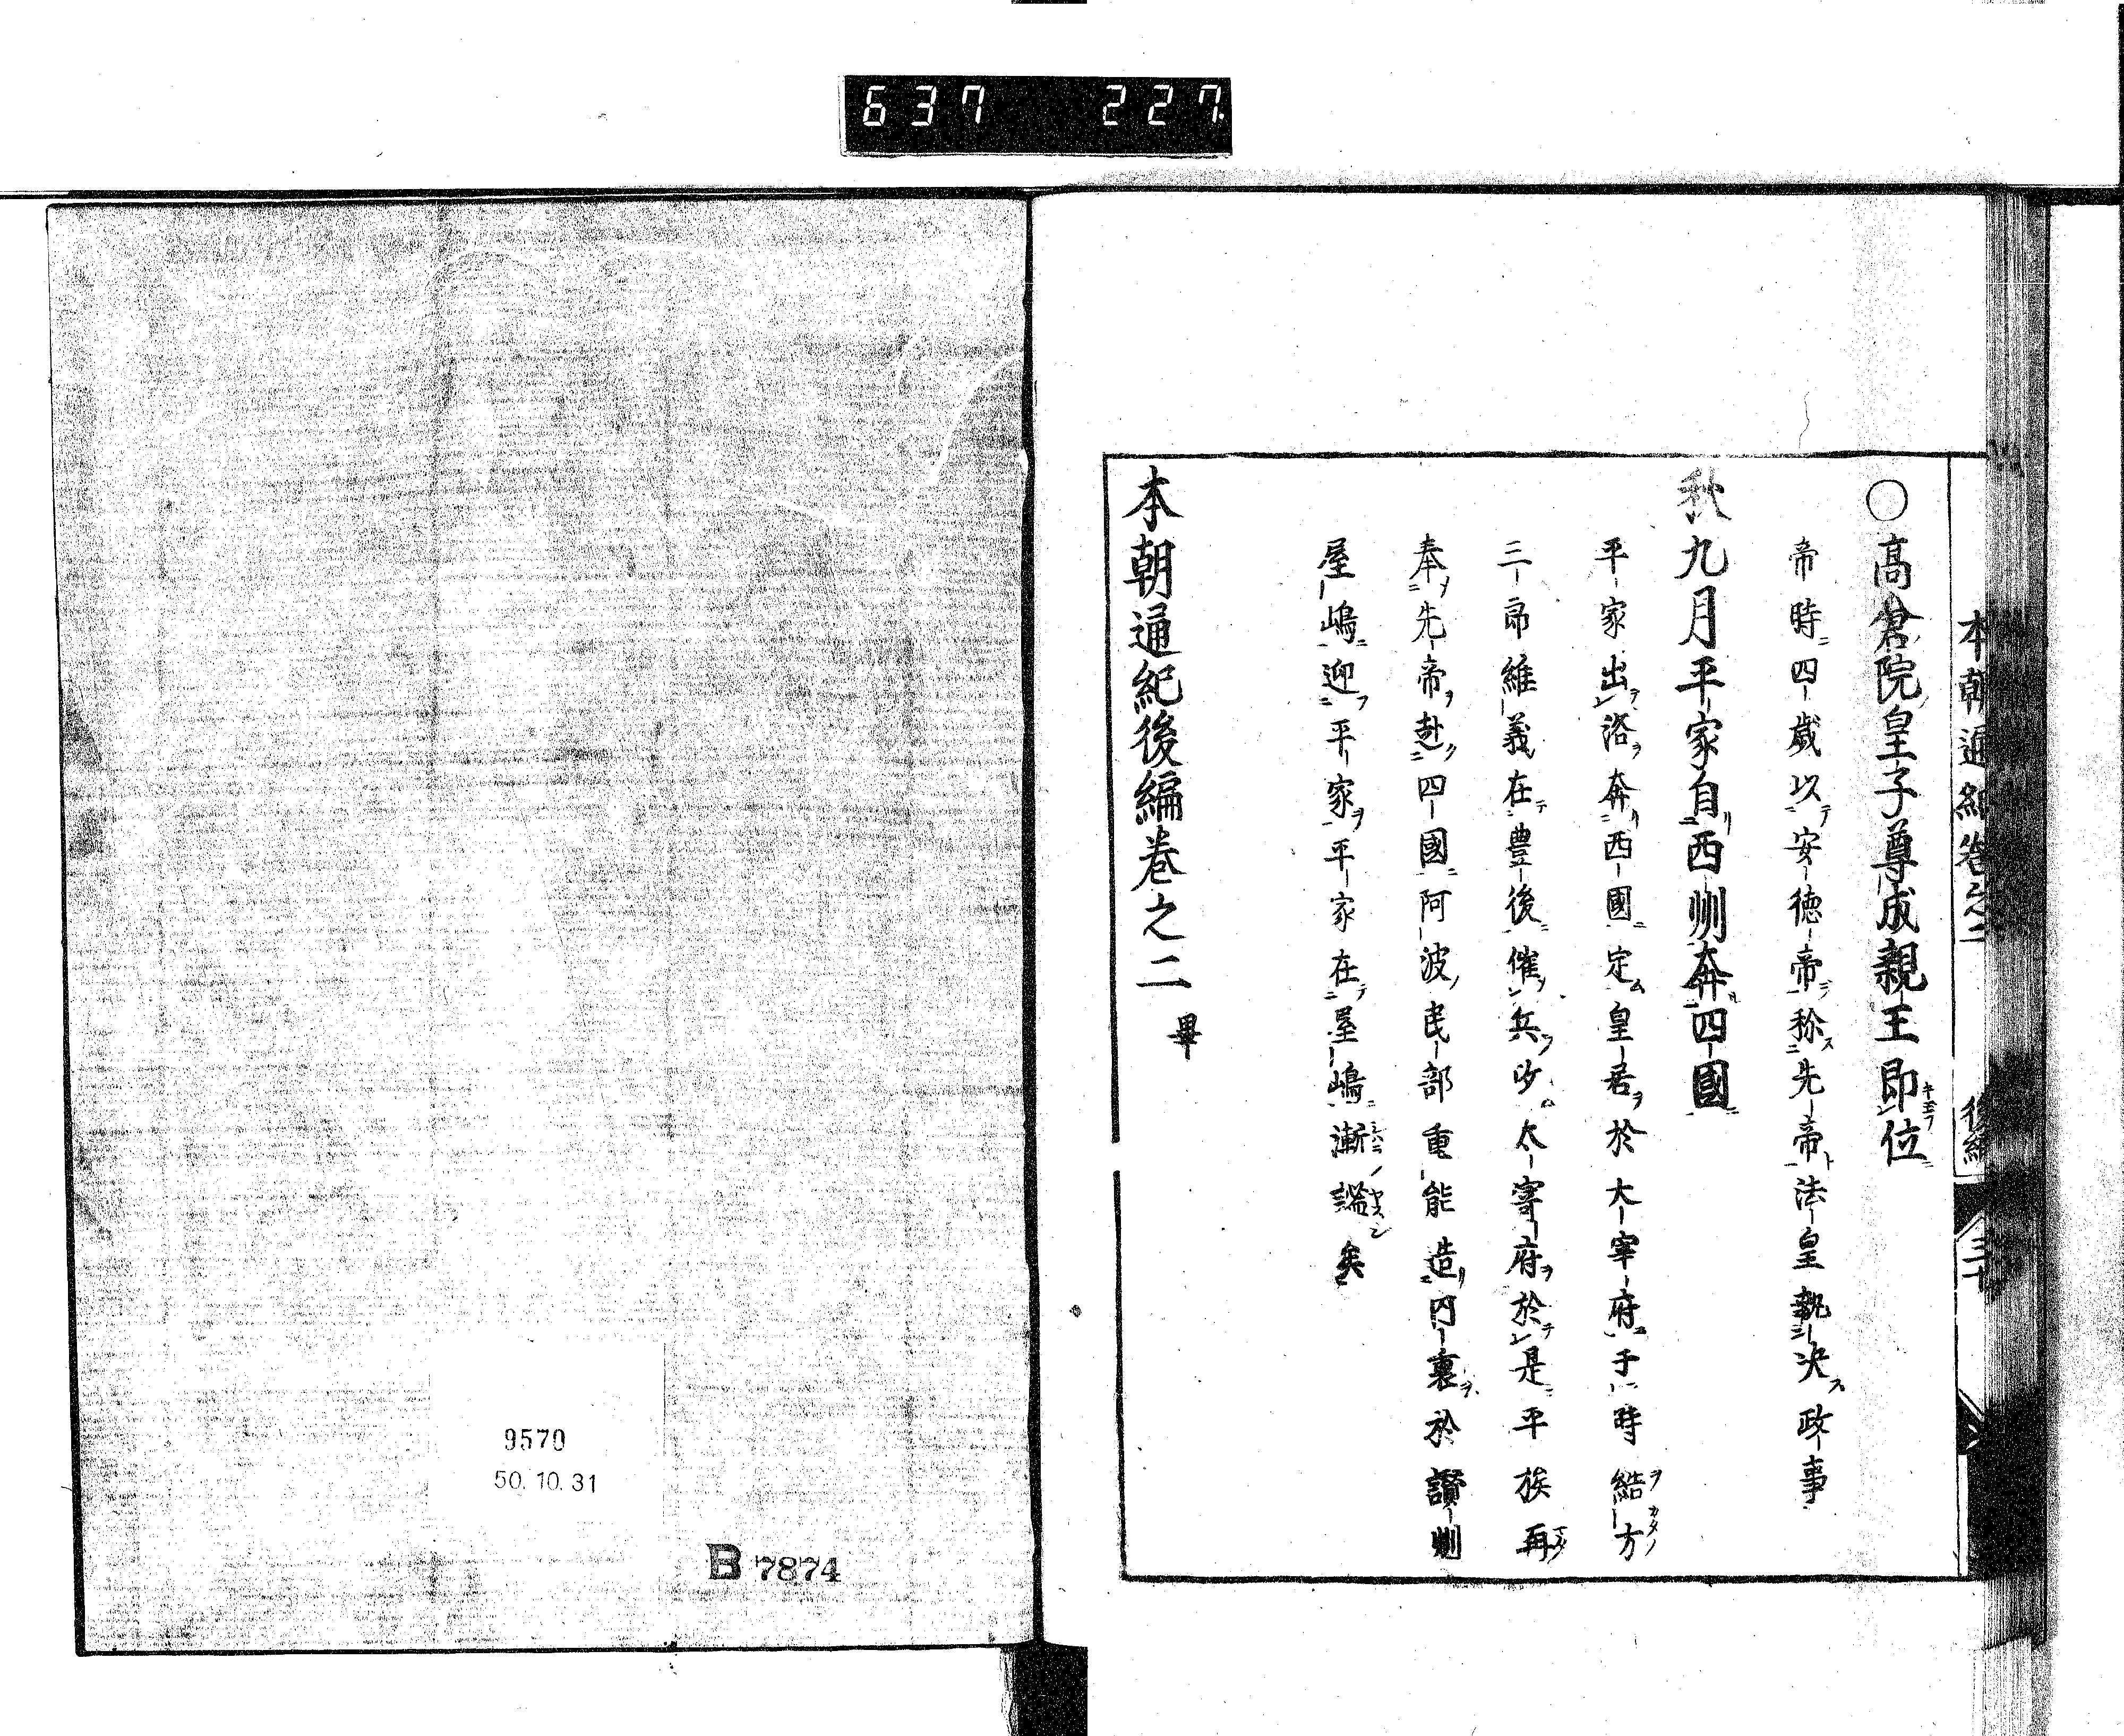 637 227
本朝通紀卷之二 後編 三十
○高倉院皇子尊成親王即位
帝時四歲以安徳帝称先帝法皇執决政事
秋九月平家自西州奔四國
平家出洛奔西國定皇居於太宰府于時緒方
三郎維義在豊後催兵攻太宰府於是平族再
奉先帝赴四國阿波民部重能造内裏於讃州
屋嶋迎平家平家在屋嶋漸謐矣
本朝通紀後編卷之二 畢
9570
50.10.31
B 7874